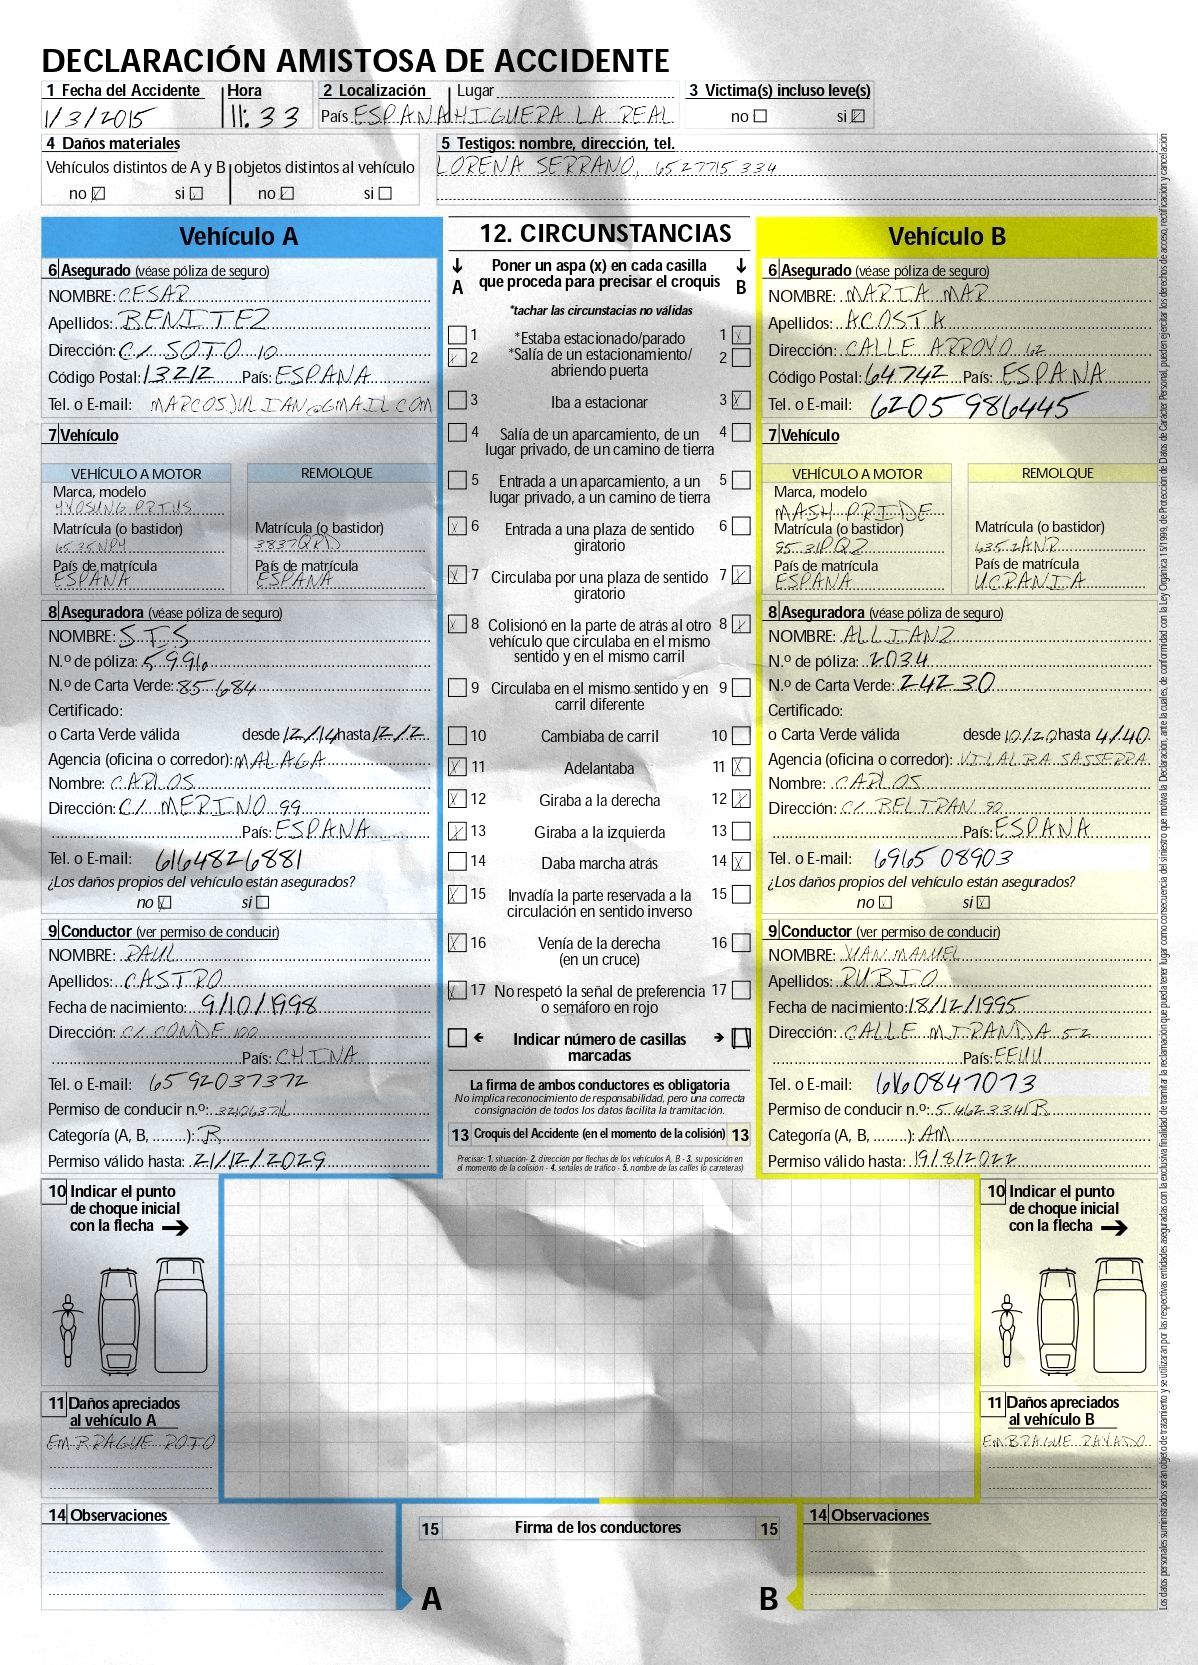 DECLARACIÓN AMISTOSA DE ACCIDENTE
1 Fecha del Accidente Hora 2 Localización Lugar 3 Victima(s) incluso leve(s)
1/3/2015 11:33 País ESPAÑA HIGUERA LA REAL no si
4 Daños materiales 5 Testigos: nombre, dirección, tel.
Vehículos distintos de A y B objetos distintos al vehículo LORENA SERRANO, 6527715334
no si no si
Vehículo A
6 Asegurado (véase póliza de seguro)
NOMBRE: CESAR
Apellidos: BENITEZ
Dirección: C/ SOTO 10
Código Postal: 13212 País: ESPAÑA
Tel. o E-mail: MARCOSJULIAN@GMAIL.COM
7 Vehículo
VEHÍCULO A MOTOR REMOLQUE
Marca, modelo
HYOSUNG PRIUS
Matrícula (o bastidor) Matrícula (o bastidor)
6535NPY 3837QRD
País de matrícula País de matrícula
ESPAÑA ESPAÑA
8 Aseguradora (véase póliza de seguro)
NOMBRE: STS
N.º de póliza: 5991
N.º de Carta Verde: 85684
Certificado:
o Carta Verde válida desde 12/14 hasta 12/2
Agencia (oficina o corredor): MALAGA
Nombre: CARLOS
Dirección: C/ MERINO 99
País: ESPAÑA
Tel. o E-mail: 6164826881
¿Los daños propios del vehículo están asegurados?
no si
9 Conductor (ver permiso de conducir)
NOMBRE: PAUL
Apellidos: CASTRO
Fecha de nacimiento: 9/10/1998
Dirección: C/ CONDE 100
País: CHINA
Tel. o E-mail: 6592037372
Permiso de conducir n.º:
Categoría (A, B, ........): B
Permiso válido hasta: 21/12/2029
12. CIRCUNSTANCIAS
A Poner un aspa (x) en cada casilla que proceda para precisar el croquis B
*tachar las circunstacias no válidas
1 *Estaba estacionado/parado 1
2 *Salía de un estacionamiento/ 2
abriendo puerta
3 Iba a estacionar 3
4 Salía de un aparcamiento, de un 4
lugar privado, de un camino de tierra
5 Entrada a un aparcamiento, a un 5
lugar privado, a un camino de tierra
6 Entrada a una plaza de sentido 6
giratorio
7 Circulaba por una plaza de sentido 7
giratorio
8 Colisionó en la parte de atrás al otro 8
vehículo que circulaba en el mismo
sentido y en el mismo carril
9 Circulaba en el mismo sentido y en 9
carril diferente
10 Cambiaba de carril 10
11 Adelantaba 11
12 Giraba a la derecha 12
13 Giraba a la izquierda 13
14 Daba marcha atrás 14
15 Invadía la parte reservada a la 15
circulación en sentido inverso
16 Venía de la derecha 16
(en un cruce)
17 No respetó la señal de preferencia 17
o semáforo en rojo
Indicar número de casillas
marcadas
La firma de ambos conductores es obligatoria
No implica reconocimiento de responsabilidad, pero una correcta
consignación de todos los datos facilita la tramitación.
13 Croquis del Accidente (en el momento de la colisión) 13
Precisar: 1. situación- 2. dirección por flechas de los vehículos A, B - 3. su posición en
el momento de la colisión - 4. señales de tráfico - 5. nombre de las calles (o carreteras)
Vehículo B
6 Asegurado (véase póliza de seguro)
NOMBRE: MARIA MAR
Apellidos: ACOSTA
Dirección: CALLE ARROYO 62
Código Postal: 64742 País: ESPAÑA
Tel. o E-mail: 6205986445
7 Vehículo
VEHÍCULO A MOTOR REMOLQUE
Marca, modelo
MASH PRIDE
Matrícula (o bastidor) Matrícula (o bastidor)
9531PQZ 6352ANR
País de matrícula País de matrícula
ESPAÑA UCRANIA
8 Aseguradora (véase póliza de seguro)
NOMBRE: ALLIANZ
N.º de póliza: 2034
N.º de Carta Verde: 24230
Certificado:
o Carta Verde válida desde 10/20 hasta 4/40
Agencia (oficina o corredor): VILALBA SASSERRA
Nombre: CARLOS
Dirección: C/ BELTRAN 92
País: ESPAÑA
Tel. o E-mail: 6965 08903
¿Los daños propios del vehículo están asegurados?
no si
9 Conductor (ver permiso de conducir)
NOMBRE: JUAN MANUEL
Apellidos: RUBIO
Fecha de nacimiento: 18/12/1995
Dirección: CALLE MIRANDA 52
País: EEUU
Tel. o E-mail: 6160847073
Permiso de conducir n.º: 5462334R
Categoría (A, B, ........): AM
Permiso válido hasta: 19/8/2022
10 Indicar el punto
de choque inicial
con la flecha
11 Daños apreciados
al vehículo A
EMBRAGUE ROTO
10 Indicar el punto
de choque inicial
con la flecha
11 Daños apreciados
al vehículo B
EMBRAGUE RAYADO
14 Observaciones
15 Firma de los conductores 15
A B
14 Observaciones